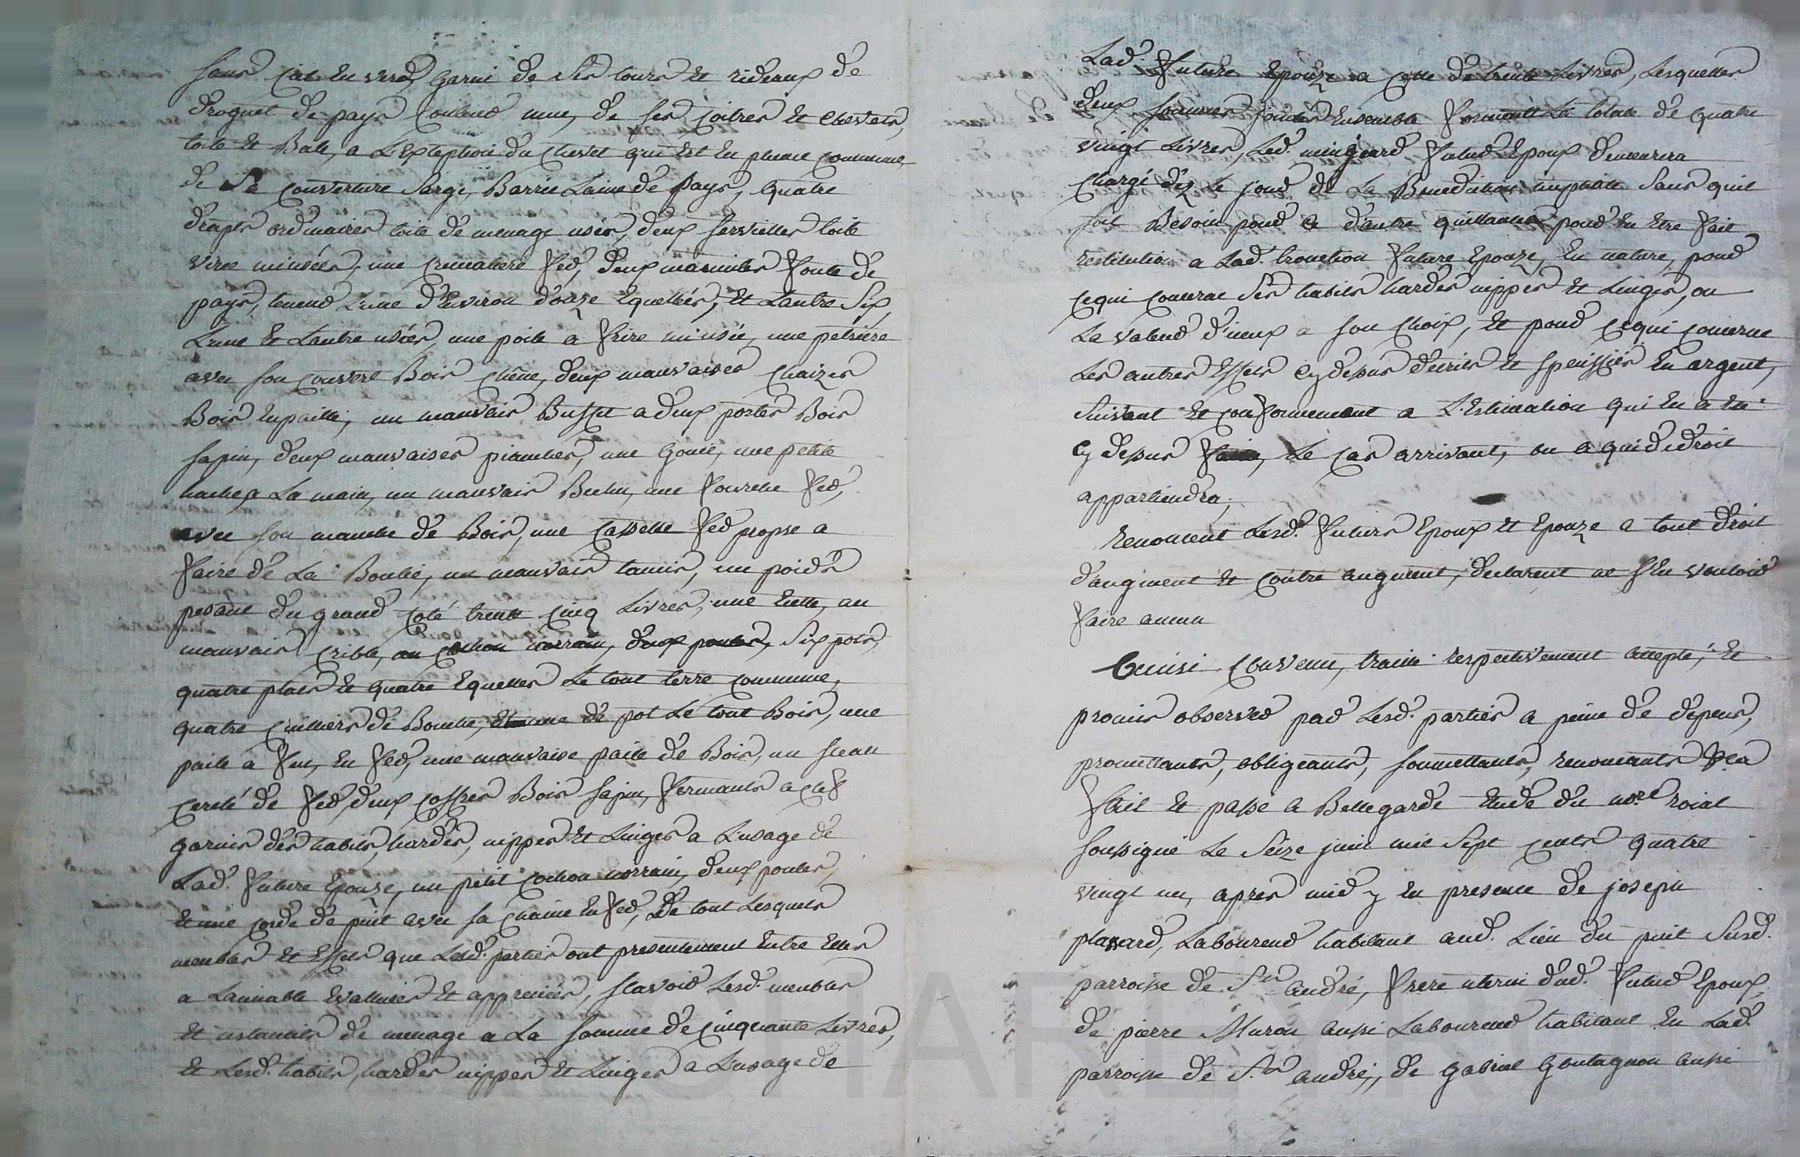 garni de ses tours et rideaux de
droguet de pays couleur mue, de ses coitres et chevets,
toile et Bale, a L'Exception du chevet qui est en plume commune,
de Sa couverture Sarge Barrée Laine de pays, quatre
draps ordinaires toile de menage usés, deux serviettes toile
mi usées, une cremaliere fer, deux marmites fonte de
pays, tenent L'une d'Environ douze Equellées, et L'autre Six
L'une et L'autre usées, une poile a frire mi usée, une petriére
avec son couvert Bois chêne, deux mauvaises chaizes
Bois Enpaillé, un mauvais Buffet a deux portes Bois
sapin, deux mauvaises une petite
hache a La main, un mauvais une fourche fer,
avec son manche de Bois, une Casserolle fer propre a
faire de La Boulie, un mauvais tamis, un poids
pesant du grand coté trente cinq Livres, une un
mauvais crible, un cochon norrain, deux poules, Six pots,
quatre plats et quatre Equelles Le tout terre commune,
quatre cuilliers de Bouche, et une de pot Le tout Bois, une
paile a feu, en fer, une mauvaise paile de Bois, un sceau
cerclé de fer, deux coffres Bois sapin, fermants a clef
garnis des habits, hardes, nippes et Linges a L'usage de
Lad. future Epouze, un petit cochon norrain, deux poules,
et une corde de puit avec sa chaine en fer, De tout Lesquels
meubles et Effets que Lesd. parties ont presentement Entre Elles
a L'amiable Evalués et appreciés, scavoir Lesd. meubles
et ustancils de menage a La somme de cinquante Livres,
et Lesd. habits, hardes nippes et Linges a L'usage de
Lad. future Epouze a celle de trente Livres, Lesquelles
deux sommes jointes Ensemble forment La totale de quatre
vingt Livres, Led. mingeard futur Epoux demeurera
chargé dez Le jour de La Benediction nuptiale Sans quil
soit Besoin pour ce d'autre quittance pour en etre fait
restitution a Lad. future Epouze, En nature, pour
cequi concerne Ses habits hardes nippes et Linges, ou
La valeur d'iceux a son choix, et pour cequi concerne
Les autres Effets cy dessus decrits et speciffiés En argent,
Suivant et conformement a L'Estimation qui En a Eté
cy dessus faite, Le cas arrivant, ou a qui de droit
appartiendra.
Renoncent Lesd. futurs Epoux et Epouze a tout droit
d'augment et contre augment, declarent ne s'En vouloir
faire aucun
Ainsi convenu, traité respectivement accepté, et
promis observer par Lesd. parties a peine de depens,
promettants, obligeants, soumettants, renoncants &ca
fait et passé a Bellegarde Etude du nore roial
soussigné Le Seize juin mil Sept cents quatre
vingt un, apres midy En presence de joseph
plassard, Laboureur habitant aud. Lieu du puit Susd.
parroisse de St andré, frere uterin dud. futur Epoux,
de pierre Muron aussi Laboureur habitant En Lad.
parroisse de St andré, de gabriel Goutagnou aussi